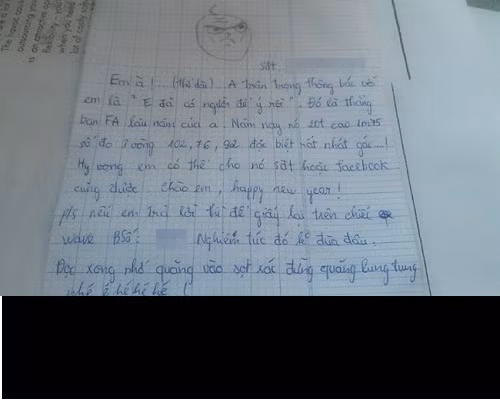 sđt.
Em à !... (thở dài). A trân trọng thông báo với
em là " E đã có người để ý rồi". Đó là thằng
bạn FA lâu năm của a. Năm nay nó 20t cao 1m75
số đo 3 vòng 102, 76, 92 đặc biệt rất nhát gái...!
Hy vọng em có thể cho nó sđt hoặc facebook
cũng được. Chào em, happy new year!
p/s nếu em trả lời thì để giấy lại trên chiếc
wave BSố: Nghiêm túc đó k đùa đâu.
Đọc xong nhớ quăng vào sọt rác đừng quăng lung tung
nhé hé hé hé hé !